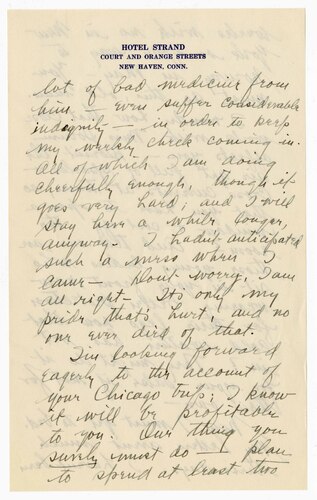 HOTEL STRAND
COURT AND ORANGE STREETS
NEW HAVEN, CONN.
lot of bad medicine from
him – even suffer considerable
indignity – in order to keep
my weekly check coming in.
All of which I am doing
cheerfully enough, though it
goes very hard; and I will
stay here a while longer,
anyway. I hadn't anticipated
such a mess when I
came – Don't worry, I am
all right – It's only my
pride that's hurt, and no
one ever died of that.
I'm looking forward
eagerly to the account of
your Chicago trip; I know
it will be profitable
to you. One thing you
surely must do – plan
to spend at least two